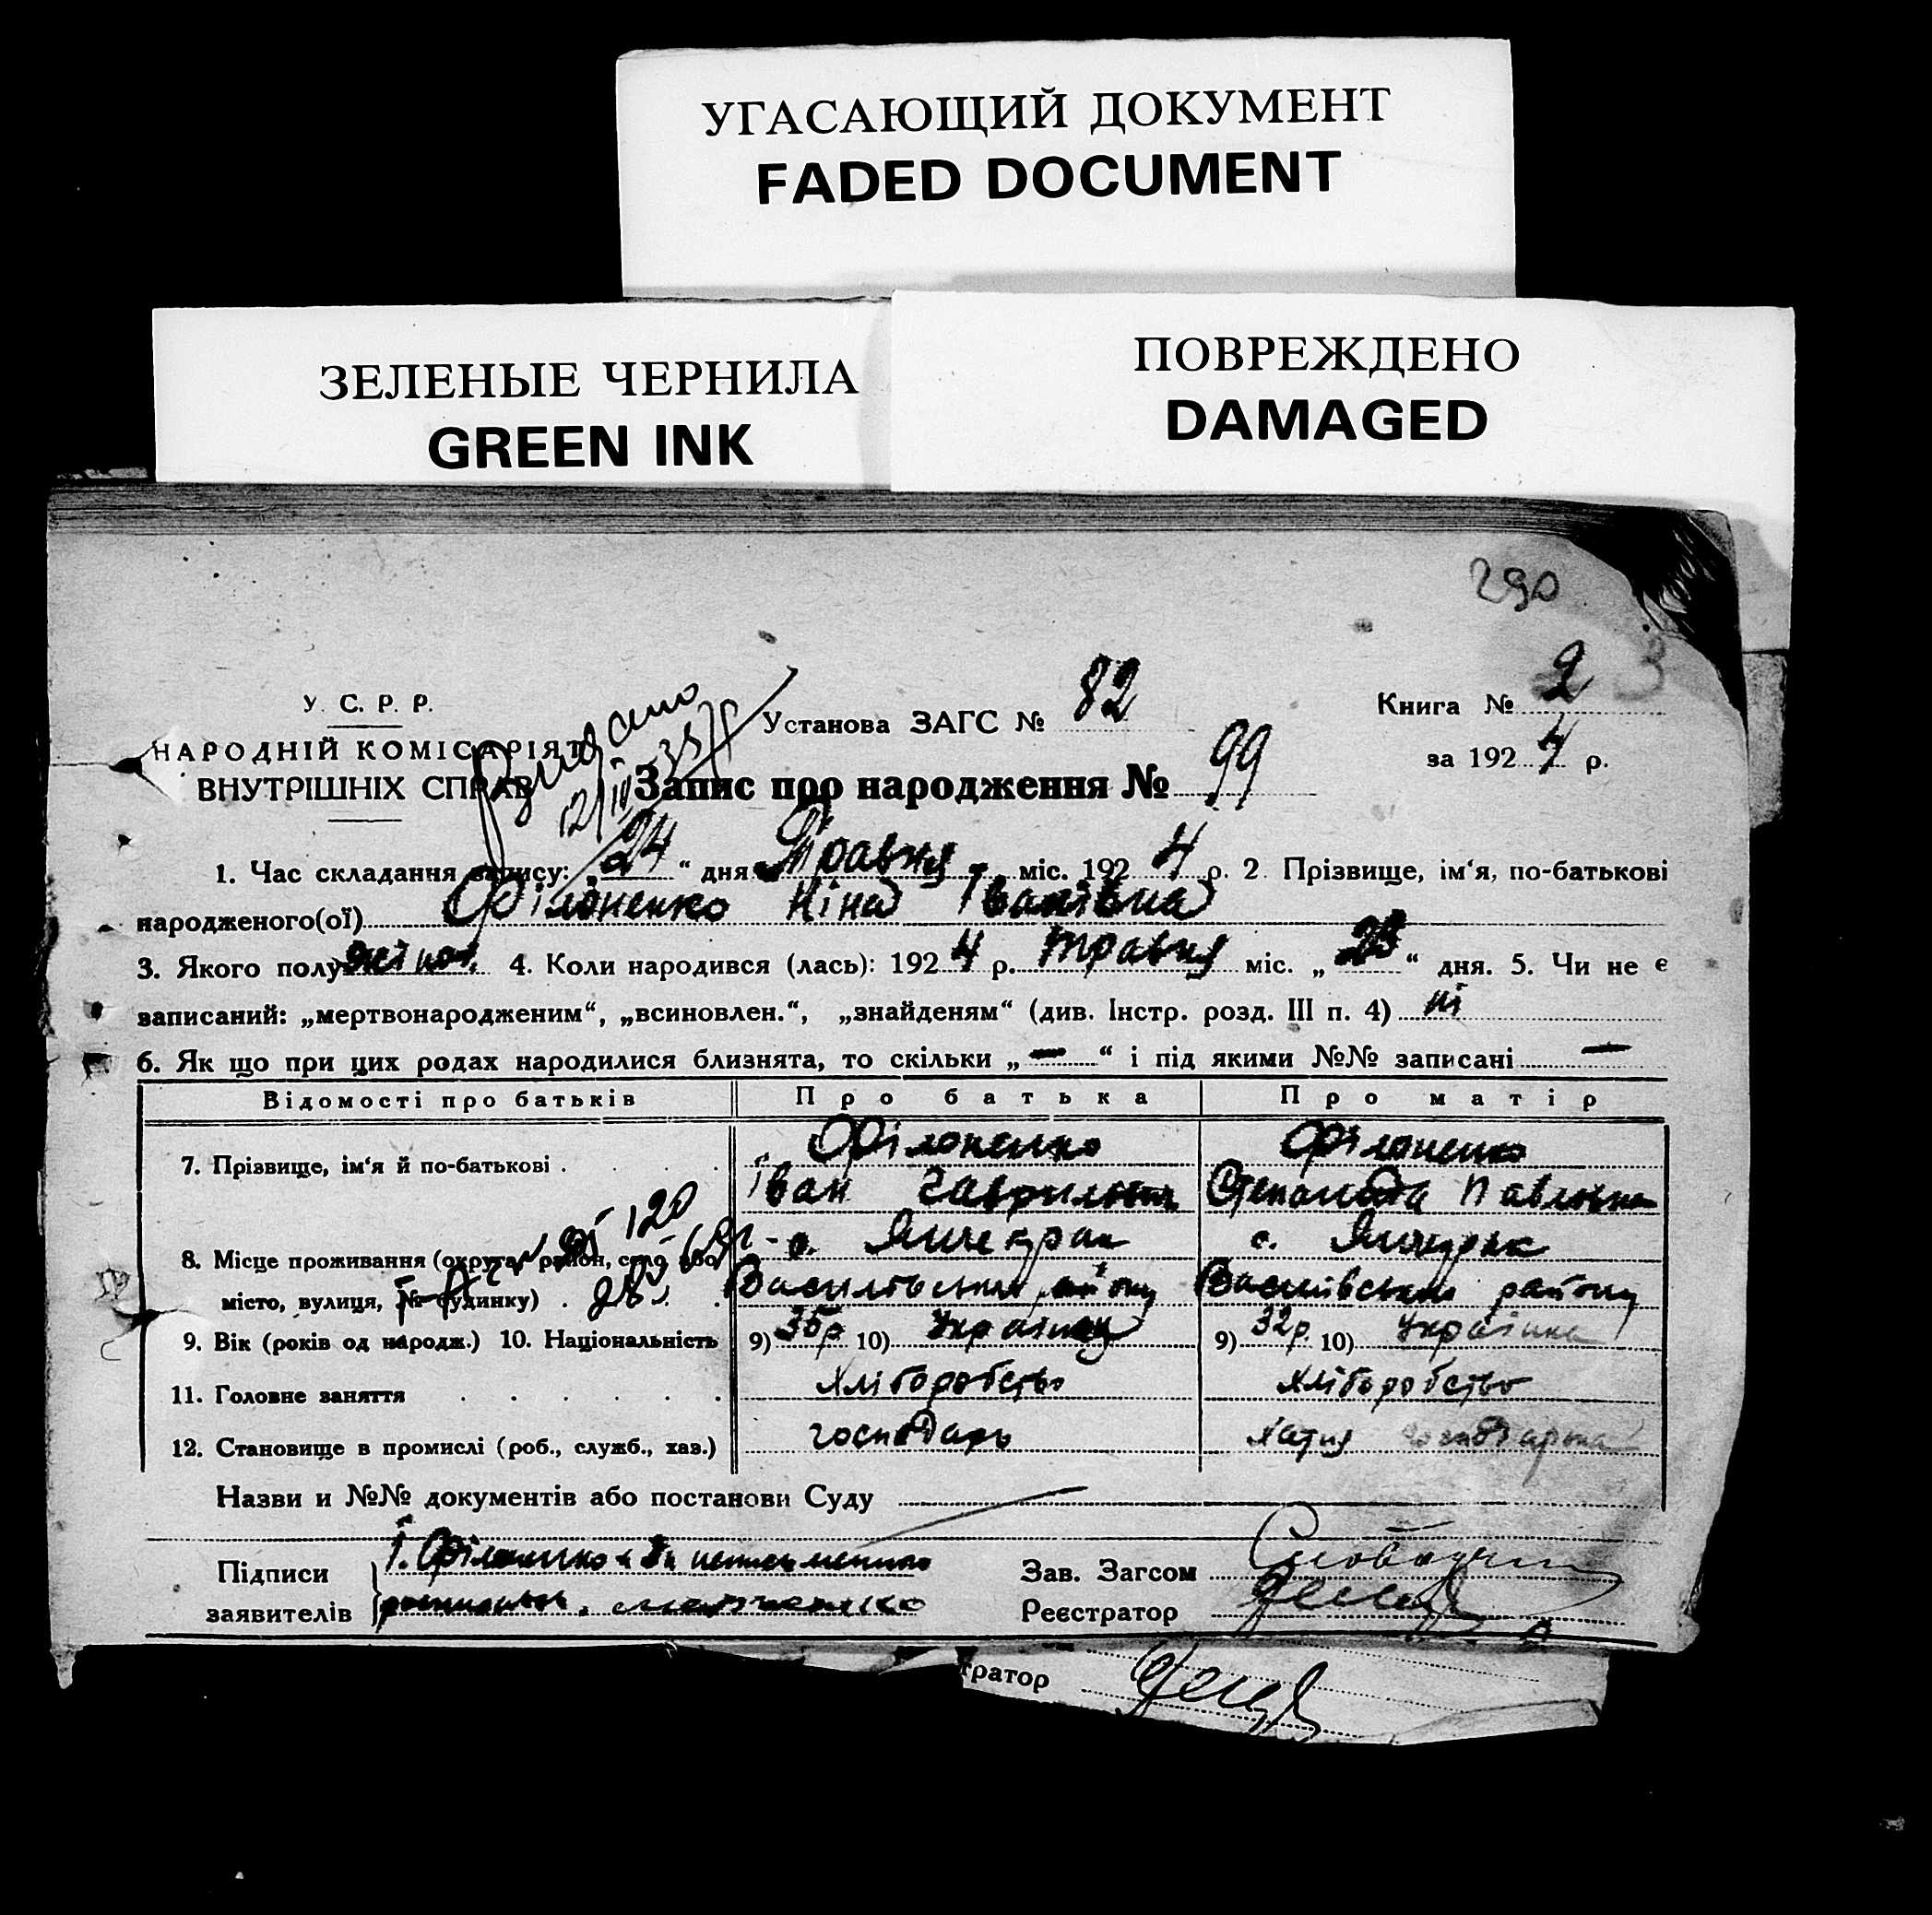 УГАСАЮЩИЙ ДОКУМЕНТ
FADED DOCUMENT
ЗЕЛЕНЫЕ ЧЕРНИЛА
GREEN INK
ПОВРЕЖДЕНО
DAMAGED
290
У. С. Р. Р.
НАРОДНІЙ КОМІСАРІЯТ
ВНУТРІШНІХ СПРАВ
Видано
Установа ЗАГС № 82
Книга № 2
за 1924 р.
Запис про народження № 99
1. Час складання запису: „24“ дня Травня міс. 1924 р. 2. Прізвище, ім‘я, по-батькові
народженого(ої) Філоненко Ніна Іванівна
3. Якого полу жіноч. 4. Коли народився (лась): 1924 р. травня міс. „23“ дня. 5. Чи не є
записаний: „мертвонародженим“, „всиновлен.“, „знайденям“ (див. Інстр. розд. III п. 4) ні
6. Як що при цих родах народилися близнята, то скільки „—“ і під якими №№ записані —
Відомості про батьків Про батька Про матір
7. Прізвище, ім‘я й по-батькові Філоненко Філоненко
Іван Гаврилович Степанида Павлівна
8. Місце проживання (округа, район, село або с. Янчекрак с. Янчекрак
місто, вулиця, № будинку) Василівського району Василівського району
9. Вік (років од народж.) 10. Національність 9) 35р. 10) Українець 9) 32р. 10) Українка
11. Головне заняття Хліборобство хліборобство
12. Становище в промислі (роб., служб., хаз.) господарь хатня господарка
Назви и №№ документів або постанови Суду
Підписи І. Філоненко
заявителів
Зав. Загсом
Реєстратор
тратор